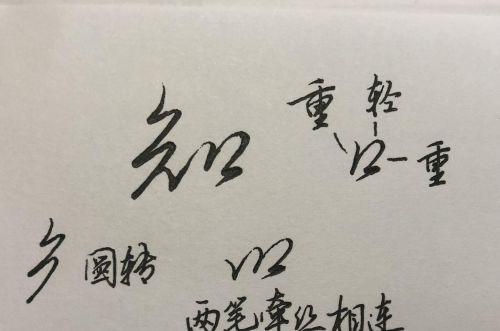 知
重 轻
口 重
圆转
两笔牵丝相连